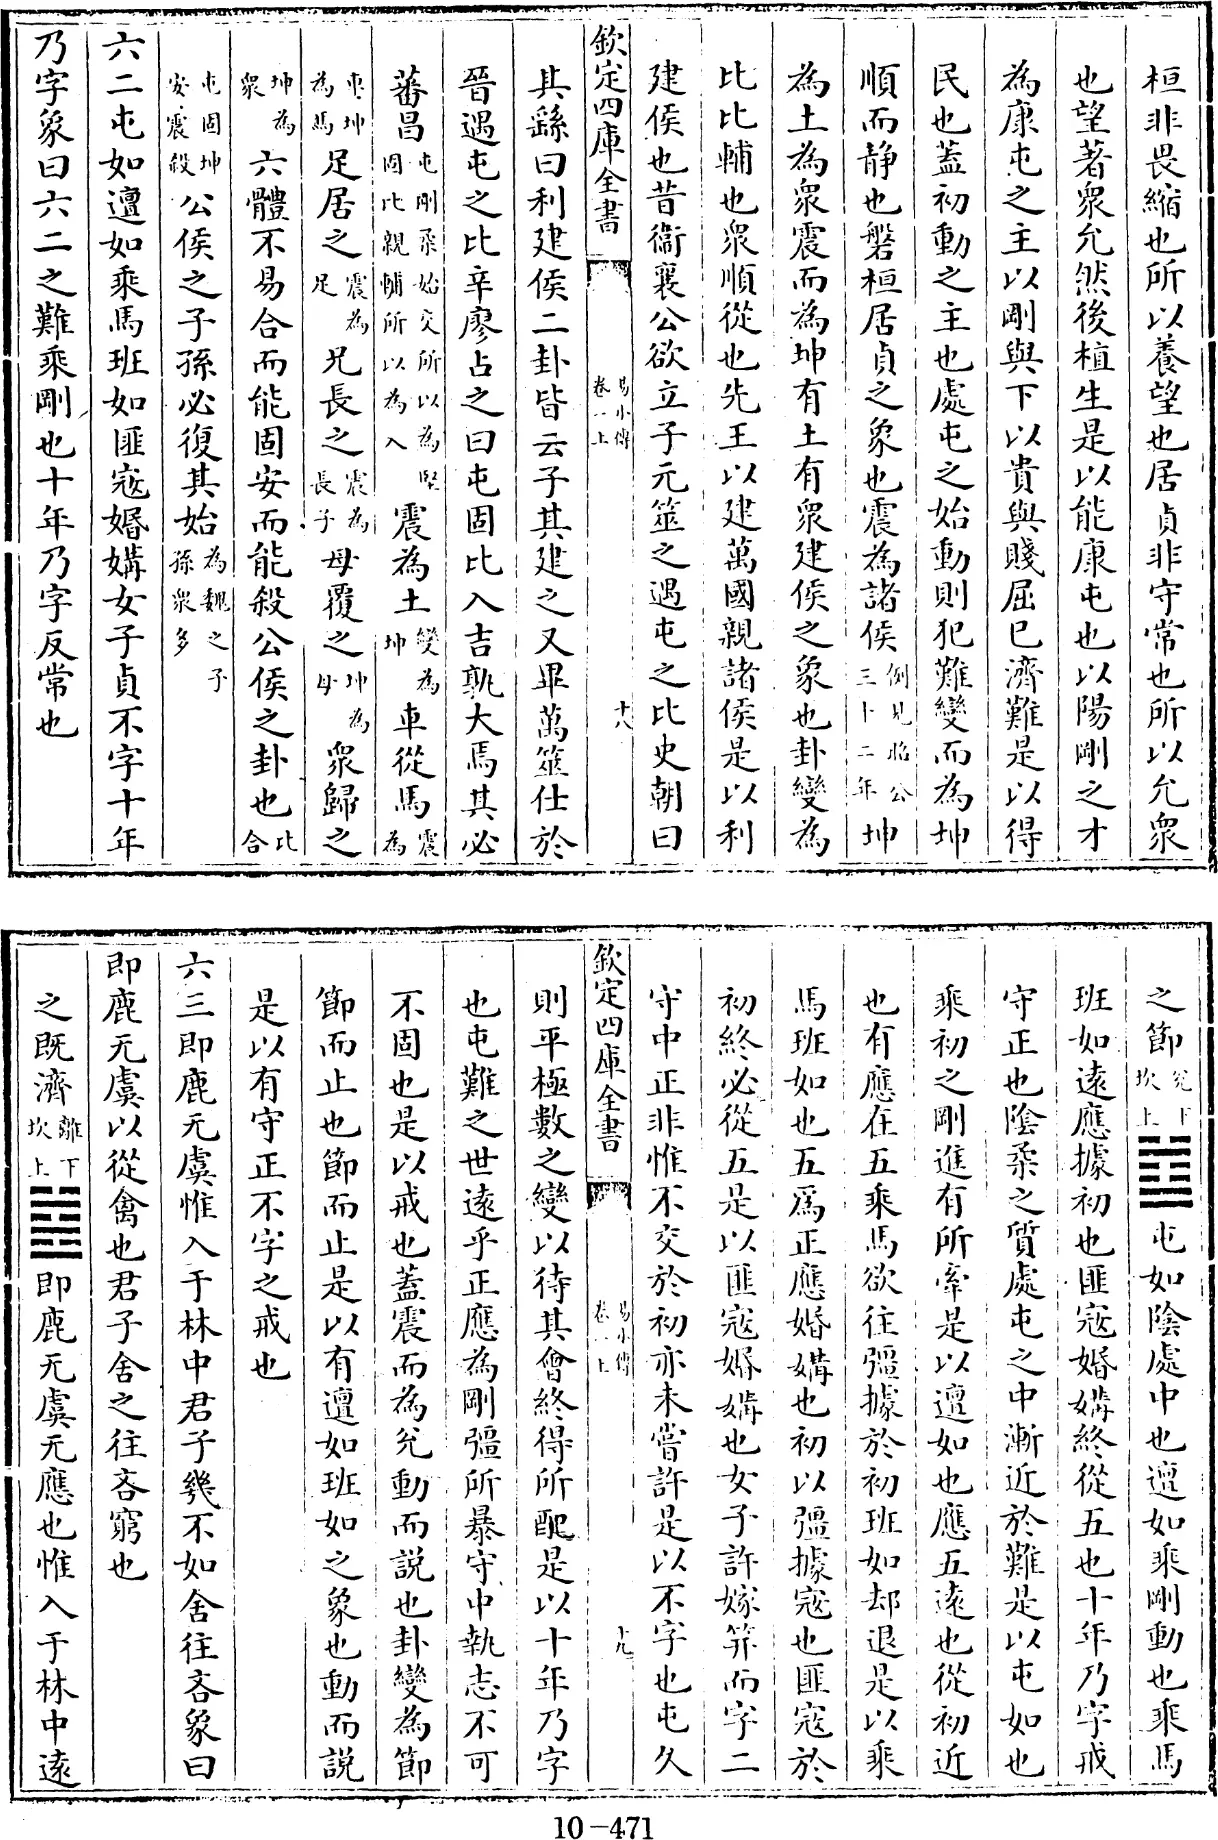 桓非畏縮也所以養望也居貞非守常也所以允衆
也望著衆允然後植生是以能康屯也以陽剛之才
為康屯之主以剛與下以貴與賤屈已濟難是以得
民也蓋初動之主也處屯之始動則犯難變而為坤
順而静也磐桓居貞之象也震為諸侯例見昭公三十二年坤
為土為衆震而為坤有土有衆建侯之象也卦變為
比比輔也衆順從也先王以建萬國親諸侯是以利
建侯也昔衞襄公欲立子元筮之遇屯之比史朝曰
欽定四庫全書
易小傳
卷一上
十八
其繇曰利建侯二卦皆云子其建之又畢萬筮仕於
晉遇屯之比辛廖占之曰屯固比入吉孰大焉其必
蕃昌屯剛柔始交所以為堅固比親輔所以為入震為土變為坤車從馬震為
車坤為馬足居之震為足兄長之震為長子母覆之坤為母衆歸之
坤為衆六體不易合而能固安而能殺公侯之卦也比合
屯固坤安震殺公侯之子孫必復其始為魏之子孫衆多
六二屯如邅如乘馬班如匪寇婚媾女子貞不字十年
乃字象曰六二之難乘剛也十年乃字反常也
之節兊下坎上䷻屯如陰處中也邅如乘剛動也乘馬
班如遠應據初也匪寇婚媾終從五也十年乃字戒
守正也陰柔之質處屯之中漸近於難是以屯如也
乘初之剛進有所牽是以邅如也應五遠也從初近
也有應在五乘馬欲往彊據於初班如却退是以乘
馬班如也五為正應婚媾也初以彊據寇也匪寇於
初終必從五是以匪寇婚媾也女子許嫁筓而字二
守中正非惟不交於初亦未嘗許是以不字也屯久
欽定四庫全書
易小傳
卷一上
十九
則平極數之變以待其會終得所配是以十年乃字
也屯難之世遠乎正應為剛彊所暴守中執志不可
不固也是以戒也蓋震而為兊動而説也卦變為節
節而止也節而止是以有邅如班如之象也動而説
是以有守正不字之戒也
六三即鹿无虞惟入于林中君子幾不如舍往吝象曰
即鹿无虞以從禽也君子舍之往吝窮也
之既濟離下坎上䷾即鹿无虞无應也惟入于林中遠
10-471